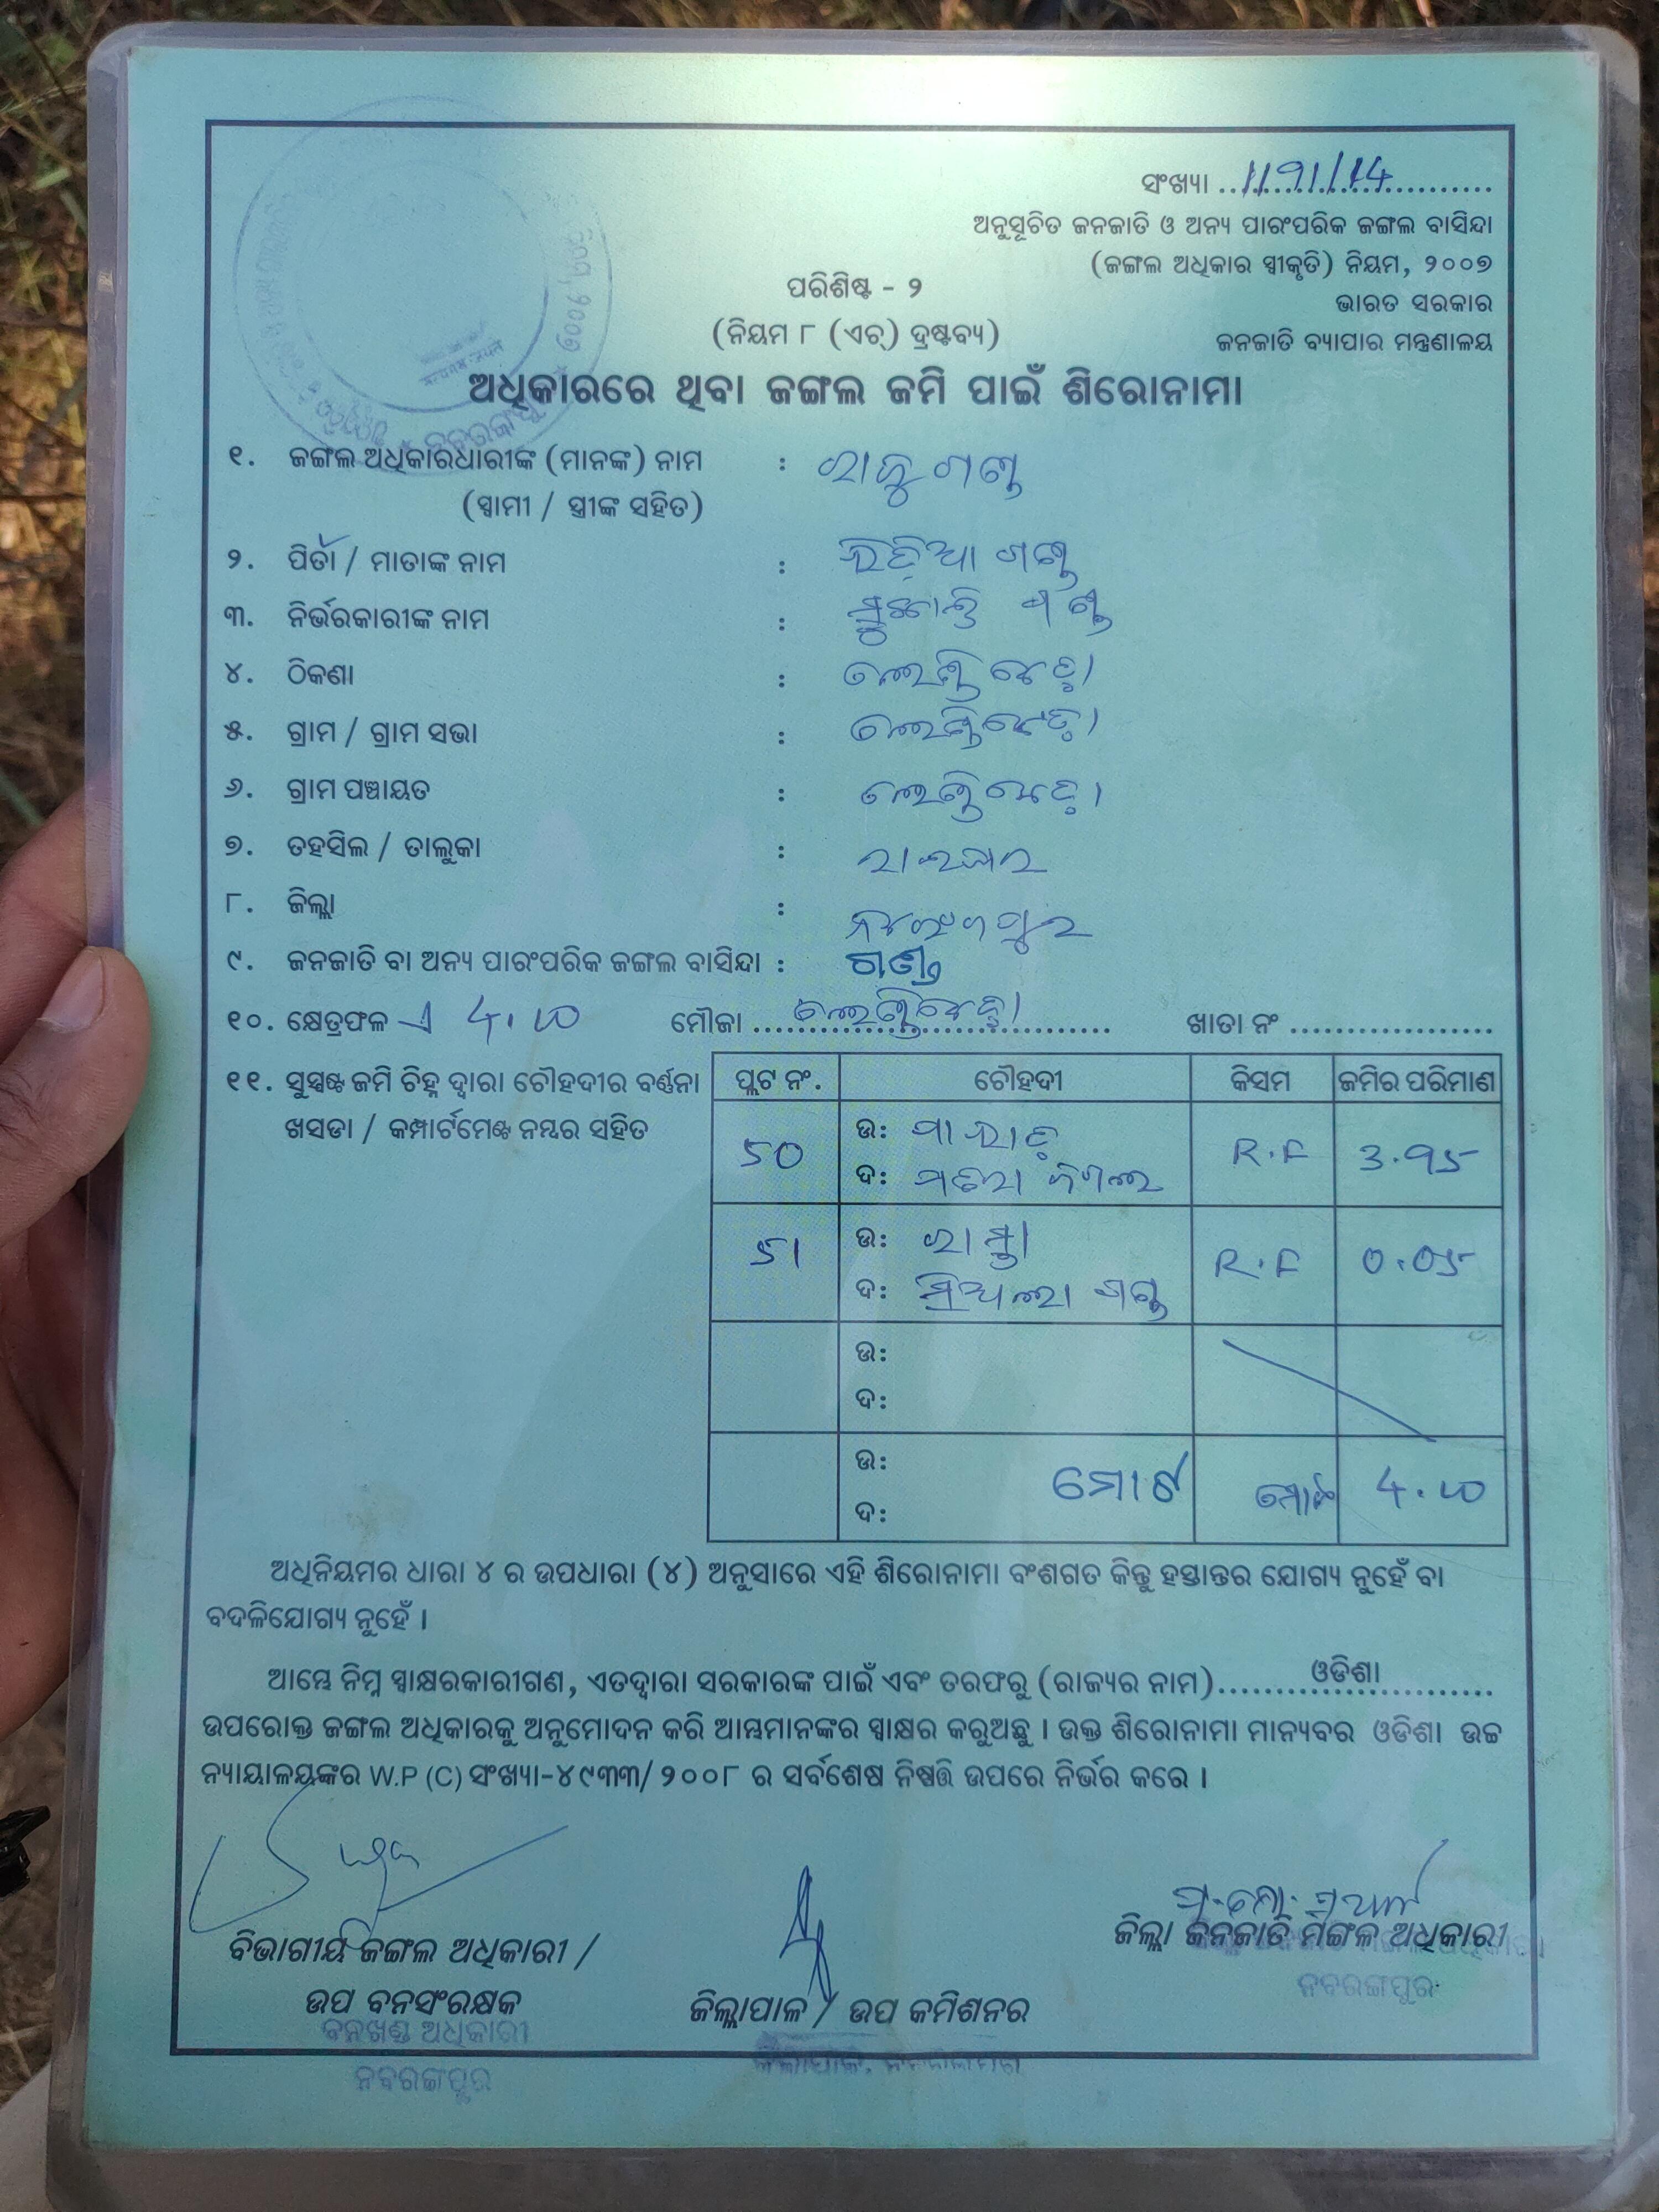 ସଂଖ୍ୟା ..1191/14..
ଅନୁସୂଚିତ ଜନଜାତି ଓ ଅନ୍ୟ ପାରଂପରିକ ଜଙ୍ଗଲ ବାସିନ୍ଦା
(ଜଙ୍ଗଲ ଅଧିକାର ସ୍ୱୀକୃତି) ନିୟମ, ୨୦୦୭
ଭାରତ ସରକାର
ଜନଜାତି ବ୍ୟାପାର ମନ୍ତ୍ରଣାଳୟ
ପରିଶିଷ୍ଟ - ୨
(ନିୟମ ୮ (ଏଚ୍) ଦ୍ରଷ୍ଟବ୍ୟ)
ଅଧିକାରରେ ଥିବା ଜଙ୍ଗଲ ଜମି ପାଇଁ ଶିରୋନାମା
୧. ଜଙ୍ଗଲ ଅଧିକାରଧାରୀଙ୍କ (ମାନଙ୍କ) ନାମ : ରାଜୁ ଗଣ୍ଡ
(ସ୍ୱାମୀ / ସ୍ତ୍ରୀଙ୍କ ସହିତ)
୨. ପିତା / ମାତାଙ୍କ ନାମ : ଗଣ୍ଡ
୩. ନିର୍ଭରକାରୀଙ୍କ ନାମ : ଗଣ୍ଡ
୪. ଠିକଣା :
୫. ଗ୍ରାମ / ଗ୍ରାମ ସଭା :
୬. ଗ୍ରାମ ପଞ୍ଚାୟତ :
୭. ତହସିଲ / ତାଲୁକା : ରାଇଘର
୮. ଜିଲ୍ଲା : ନବରଂଗପୁର
୯. ଜନଜାତି ବା ଅନ୍ୟ ପାରଂପରିକ ଜଙ୍ଗଲ ବାସିନ୍ଦା : ଗଣ୍ଡ
୧୦. କ୍ଷେତ୍ରଫଳ 4.00 ମୌଜା .......... ଖାତା ନଂ ..........
୧୧. ସୁସ୍ପଷ୍ଟ ଜମି ଚିହ୍ନ ଦ୍ୱାରା ଚୌହଦୀର ବର୍ଣ୍ଣନା
ଖସଡା / କମ୍ପାର୍ଟମେଣ୍ଟ ନମ୍ବର ସହିତ
ପ୍ଲଟ ନଂ. ଚୌହଦୀ କିସମ ଜମିର ପରିମାଣ
50 ଉ: R.F 3.95
ଦ:
51 ଉ: ରାସ୍ତା R.F 0.05
ଦ: ଗଣ୍ଡ
ଉ:
ଦ:
ଉ: ମୋଟ ମୋଟ 4.00
ଦ:
ଅଧିନିୟମର ଧାରା ୪ ର ଉପଧାରା (୪) ଅନୁସାରେ ଏହି ଶିରୋନାମା ବଂଶଗତ କିନ୍ତୁ ହସ୍ତାନ୍ତର ଯୋଗ୍ୟ ନୁହେଁ ବା
ବଦଳିଯୋଗ୍ୟ ନୁହେଁ ।
ଆମ୍ଭେ ନିମ୍ନ ସ୍ୱାକ୍ଷରକାରୀଗଣ, ଏତଦ୍ୱାରା ସରକାରଙ୍କ ପାଇଁ ଏବଂ ତରଫରୁ (ରାଜ୍ୟର ନାମ)..........ଓଡିଶା..........
ଉପରୋକ୍ତ ଜଙ୍ଗଲ ଅଧିକାରକୁ ଅନୁମୋଦନ କରି ଆମ୍ଭମାନଙ୍କର ସ୍ୱାକ୍ଷର କରୁଅଛୁ । ଉକ୍ତ ଶିରୋନାମା ମାନ୍ୟବର ଓଡିଶା ଉଚ୍ଚ
ନ୍ୟାୟାଳୟଙ୍କର W.P (C) ସଂଖ୍ୟା-୪୯୩୩/ ୨୦୦୮ ର ସର୍ବଶେଷ ନିଷ୍ପତ୍ତି ଉପରେ ନିର୍ଭର କରେ ।
ବିଭାଗୀୟ ଜଙ୍ଗଲ ଅଧିକାରୀ /
ଉପ ବନସଂରକ୍ଷକ
ବନଖଣ୍ଡ ଅଧିକାରୀ
ନବରଙ୍ଗପୁର
ଜିଲ୍ଲାପାଳ / ଉପ କମିଶନର
ଜିଲ୍ଲା ଜନଜାତି ମଙ୍ଗଳ ଅଧିକାରୀ
ନବରଙ୍ଗପୁର